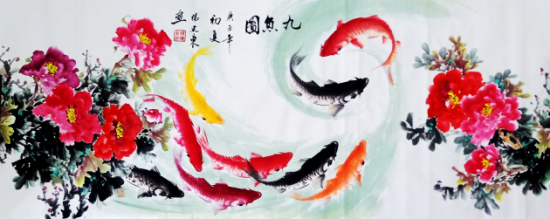 九魚圖
庚子年
初夏
楊建東
畫